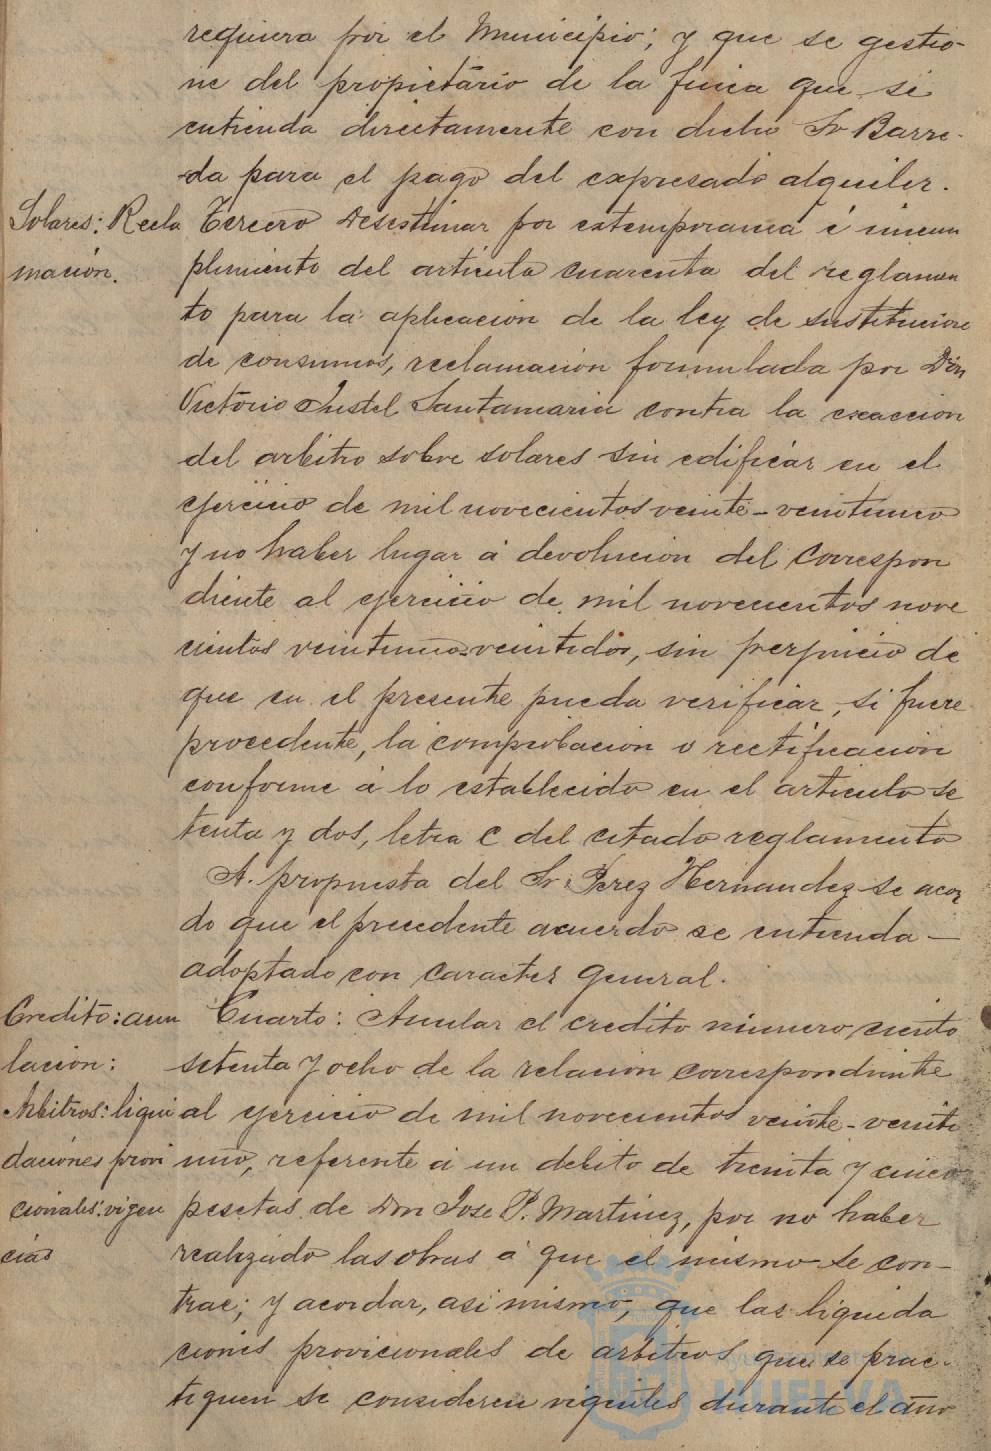 requiera por el Municipio; y que se gestio-
ne del propietario de la finca que se
entienda directamente con dicho Sr Barre-
da para el pago del expresado alquiler.
Solares: Recla
mación.
Tercero Desestimar por extemporanea é incum
plimiento del articulo cuarenta del reglamen
to para la aplicacion de la ley de sustitucion
de consumos, reclamación formulada por Don
Victorio Justel Santamaria contra la exaccion
del arbitrio sobre solares sin edificar en el
ejercicio de mil novecientos veinte-veintiuno
y no haber lugar á devolución del correspon
diente al ejercicio de mil novecientos nove
cientos veintiuno-veintidos, sin perjuicio de
que en el presente pueda verificar, si fuere
procedente, la comprobacion o rectificacion
conforme á lo establecido en el articulo se
tenta y dos, letra C del citado reglamento
A. propuesta del Sr. Perez Hernandez se acor
do que el precedente acuerdo se entienda-
adoptado con caracter general.
Credito: anu
lación:
Arbitros: liqui
daciones provi
cionales: vigen
cias
Cuarto: Anular el credito número ciento
setenta y ocho de la relacion correspondiente
al ejercicio de mil novecientos veinte-veinti
uno, referente á un debito de treinta y cinco
pesetas de Don Jose P. Martinez, por no haber
realizado las obras á que el mismo se con-
trae; y acordar, asi mismo, que las liquida
ciones provicionales de arbitros que se prac-
tiquen se consideren vigentes durante el año
Ayuntamiento de
HUELVA